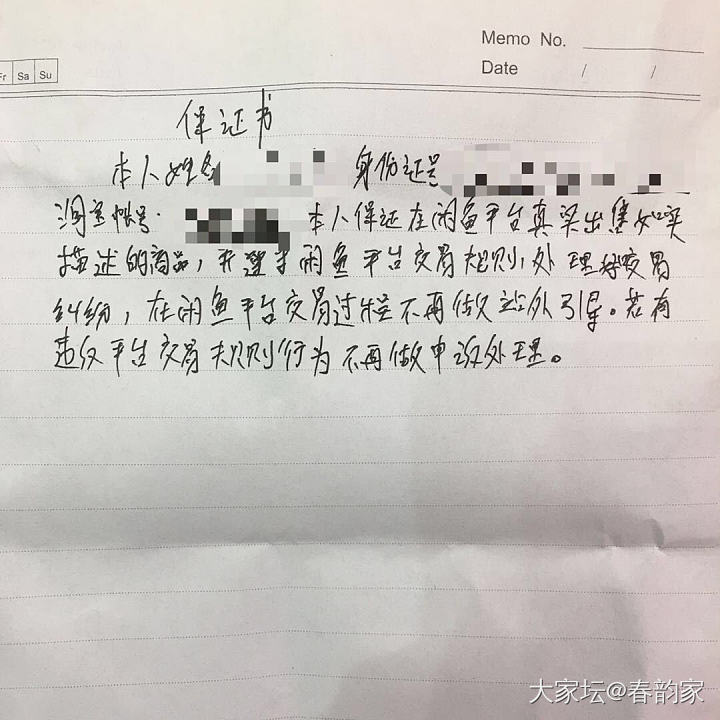 Memo No.
Date / /
Fr Sa Su
保证书
本人姓名 身份证号
淘宝帐号: 本人保证在闲鱼平台真实出售如实
描述的商品,并遵守闲鱼平台交易规则,处理好交易
纠纷,在闲鱼平台交易过程不再做站外引导。若有
违反平台交易规则行为不再做申诉处理。
大家坛@春韵家